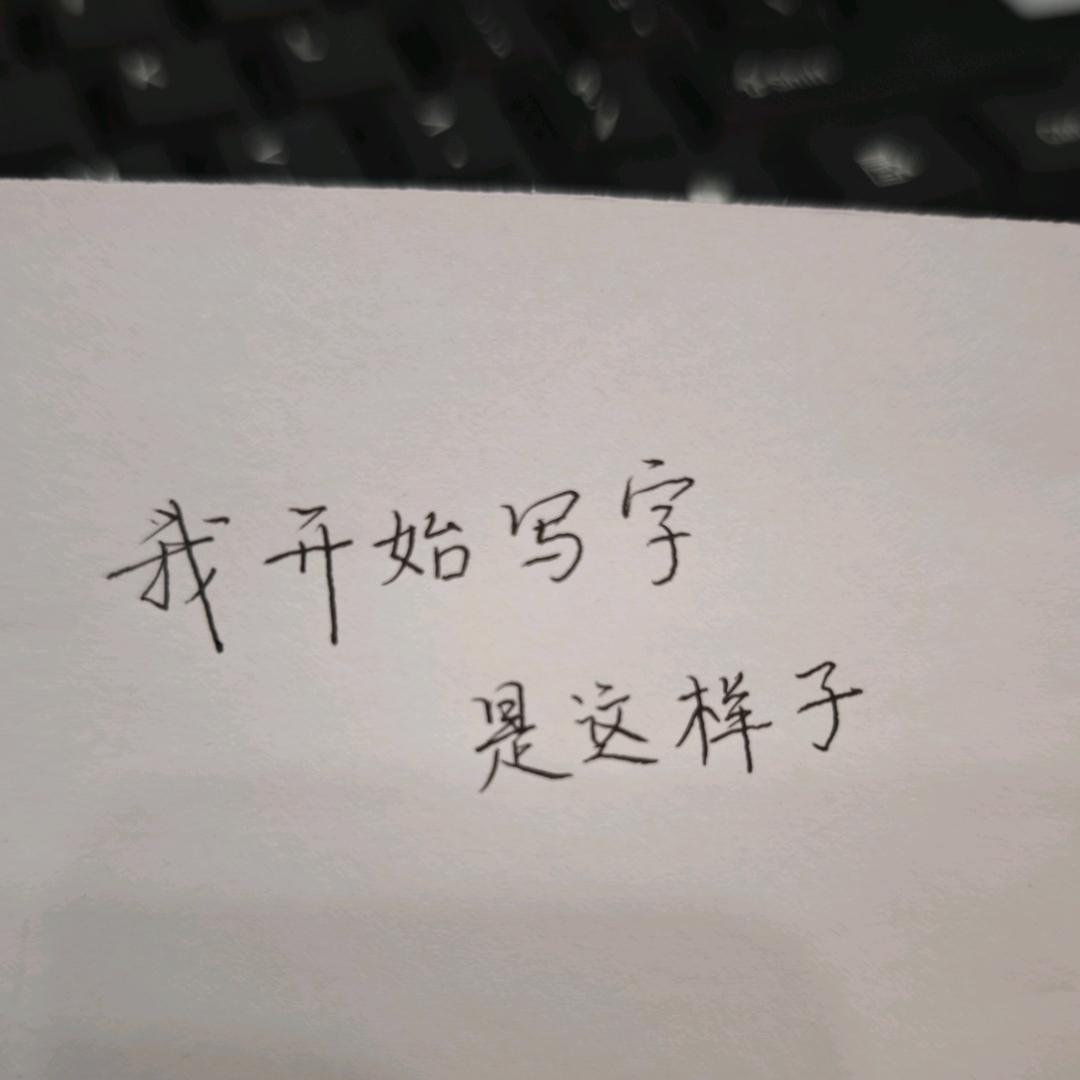 shift
我开始写字
是这样子